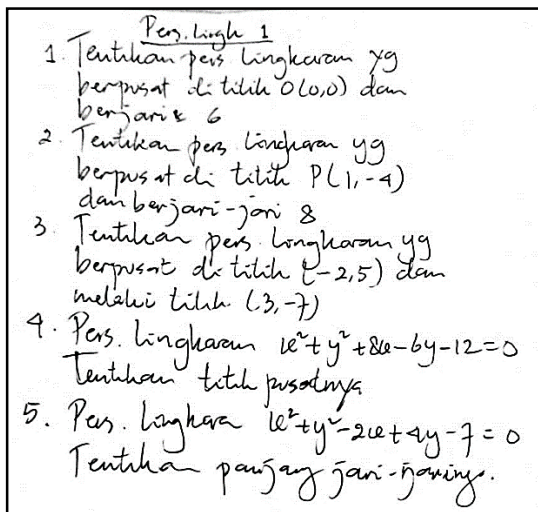 Pers. Lingk 1
1. Tentukan pers Lingkaran yg
berpusat di titik O(0,0) dan
berjari² 6
2. Tentukan pers Lingkaran yg
berpusat di titik P(1,-4)
dan berjari-jari 8
3. Tentukan pers. Lingkaran yg
berpusat di titik (-2,5) dan
melalui titik (3,-7)
4. Pers. Lingkaran x²+y²+8x-6y-12=0
Tentukan titik pusatnya
5. Pers. Lingkara x²+y²-2x+4y-7=0
Tentukan panjang jari-jarinya.